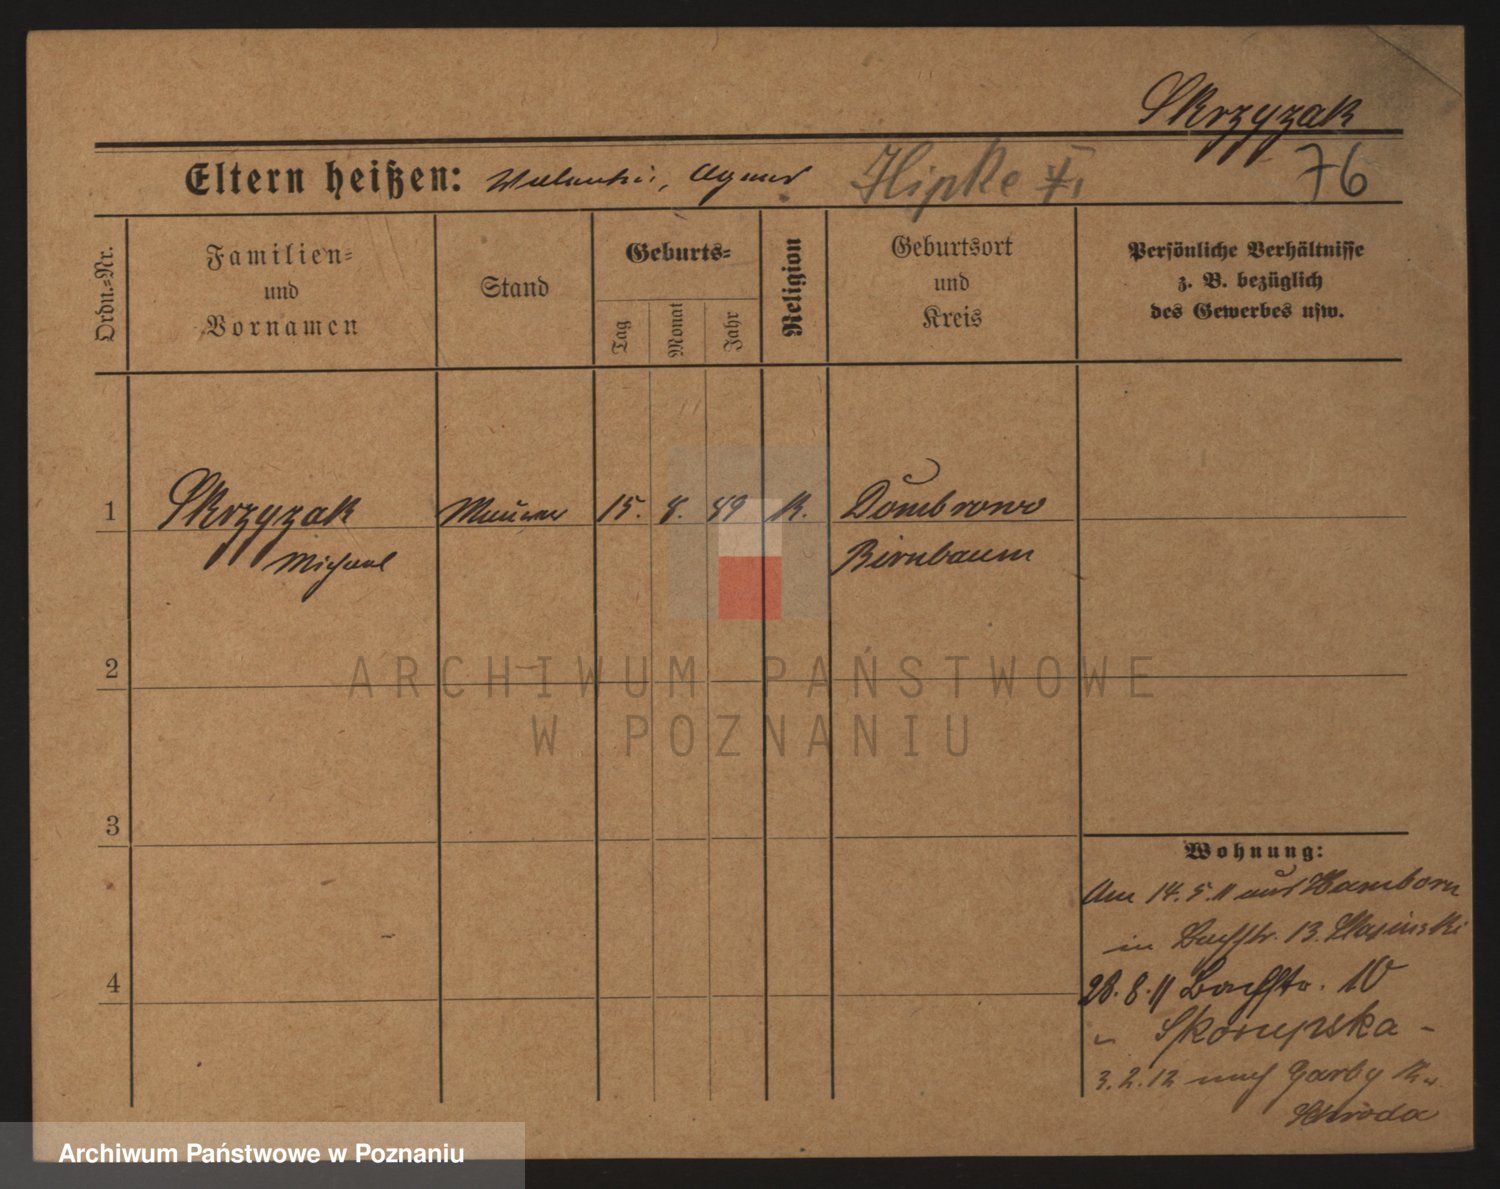 Skrzyzak
Eltern heißen: Valentin, Agnes Hipke 76
Ordn.=Nr.
Familien=
und
Vornamen
Stand
Geburts=
Tag
Monat
Jahr
Religion
Geburtsort
und
Kreis
Persönliche Verhältnisse
z. B. bezüglich
des Gewerbes usw.
1 Skrzyzak Maurer 15. 8. 89. K. Dombrowo
Michael Birnbaum
2
ARCHIWUM PAŃSTWOWE
W POZNANIU
3
Wohnung:
Am 14.5.11 aus Hamborn
in Bachstr. 13.
4
28.8.11 Bachstr. 10
" Skorupska -
3.2.12 nach Garby Kr.
Schroda
Archiwum Państwowe w Poznaniu